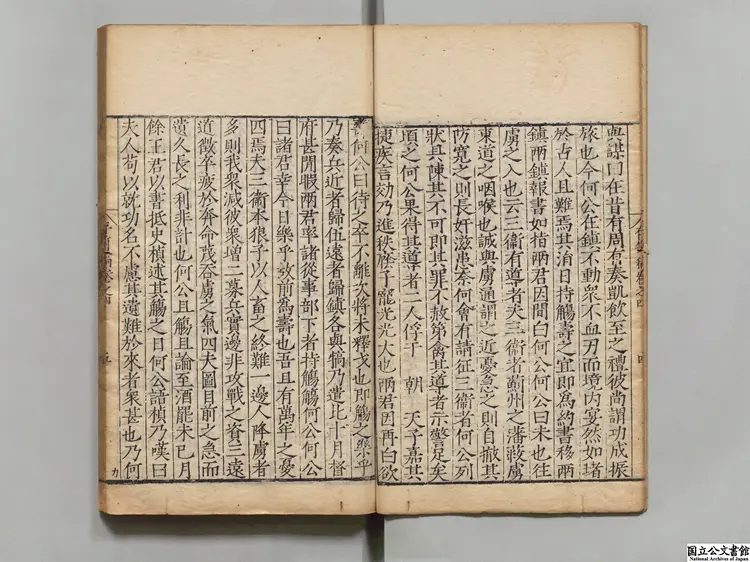 與謀曰在昔有周有奏凱飲至之禮彼尚謂功成振
旅也今何公在鎮不動衆不血刃而境內宴然如堵
於古人且難焉其治日持觴壽之宜即爲約書移兩
鎮兩鎮報書如指兩君因間白何公何公曰未也往
虜之入也云三衞有導者夫三衞者薊州之藩蔽虜
東道之咽喉也誠與虜通謂之近憂急之則自撤其
防寬之則長奸滋患奈何會有請征三衞者何公列
狀具陳其不可即其罪不赦第禽其導者示警足矣
頃之何公果得其導者二人俘于 朝 天子嘉其
捷疾言効乃進秩廕子寵光光大也兩君因再白欲
壽何公曰待之卒不離次將未釋戈也即觴之樂乎
乃奏兵近者歸伍遠者歸鎮各與犒乃遣比十月督
府甚閒暇兩君率諸從事部下者持觴觴何公何公
曰諸君幸今日樂乎效前爲壽也吾且有萬年之憂
四焉夫三衞本狼子以人畜之終難 邊人降虜者
多則我衆減彼衆增二募兵實邊非攻戰之資三遠
道徵卒疲於奔命茂吞虜之氣四夫圖目前之急而
貽久長之利非計也何公且觴且論至酒罷未已月
餘王君以書抵史楨述其觴之日何公語楨乃嘆曰
夫人苟以就功名不慮其遺難於來者衆甚也乃何
九
国立公文書館
National Archives of Japan